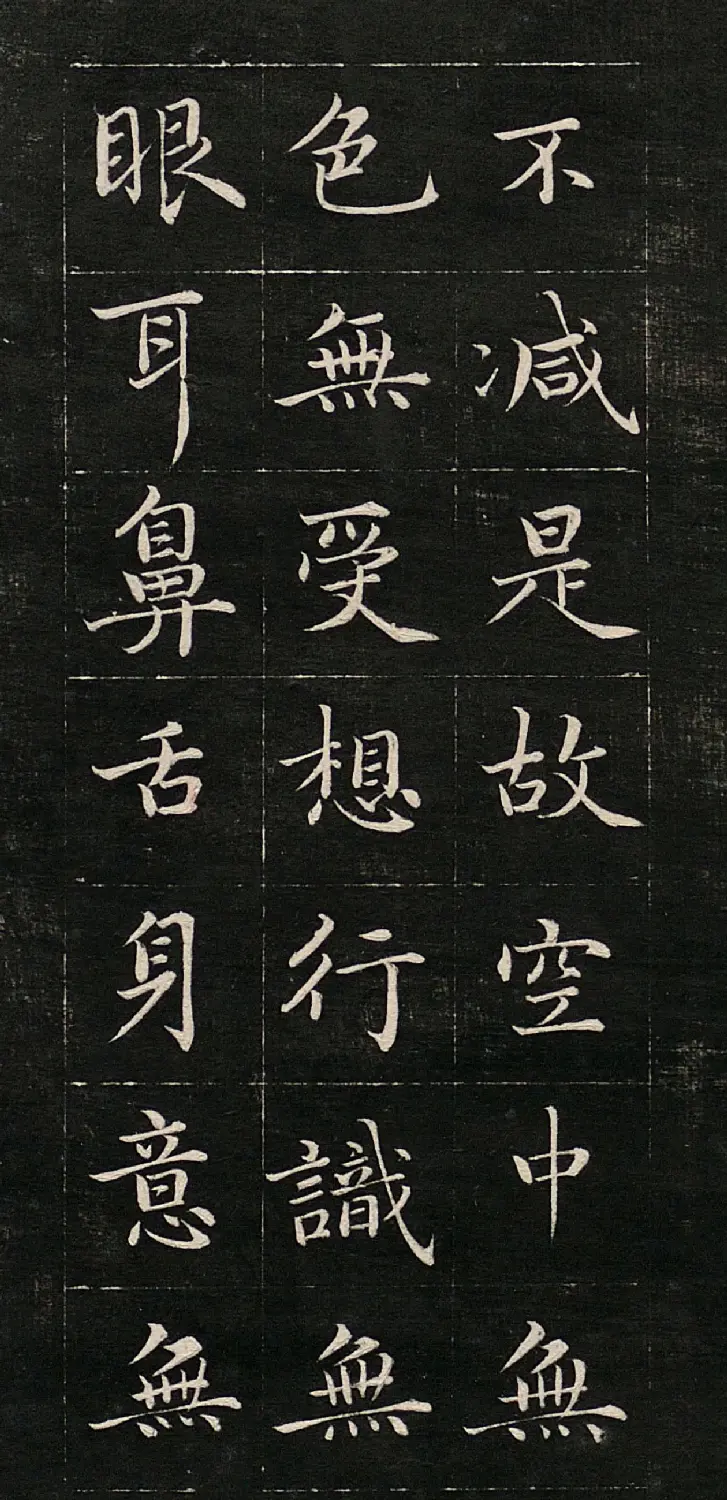 不減是故空中無
色無受想行識無
眼耳鼻舌身意無